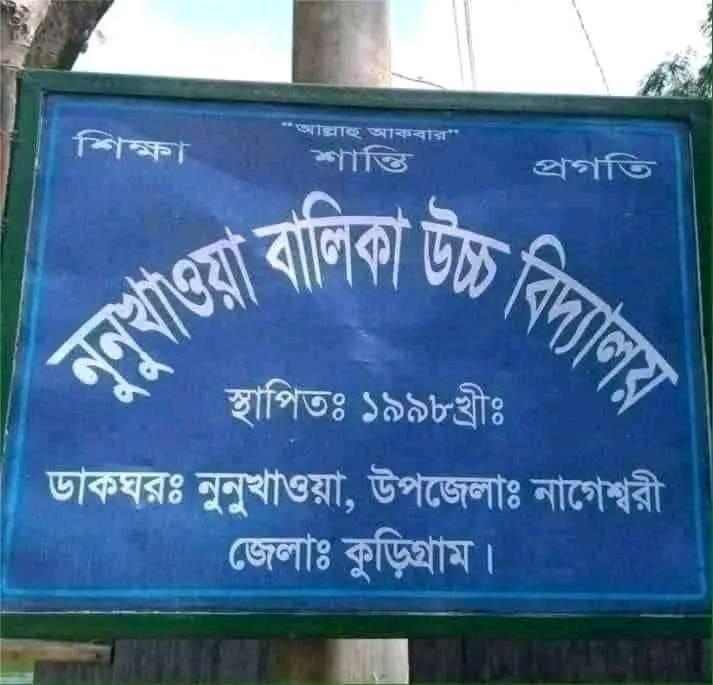 "আল্লাহু আকবার"
শিক্ষা শান্তি প্রগতি
নুনুখাওয়া বালিকা উচ্চ বিদ্যালয়
স্থাপিতঃ ১৯৯৮খ্রীঃ
ডাকঘরঃ নুনুখাওয়া, উপজেলাঃ নাগেশ্বরী
জেলাঃ কুড়িগ্রাম।